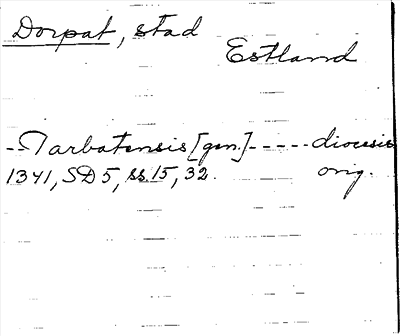 Dorpat, stad
Estland
- Tarbatensis [gen.] - - - - - diocesis
1341, SD 5, ss. 15, 32. orig.